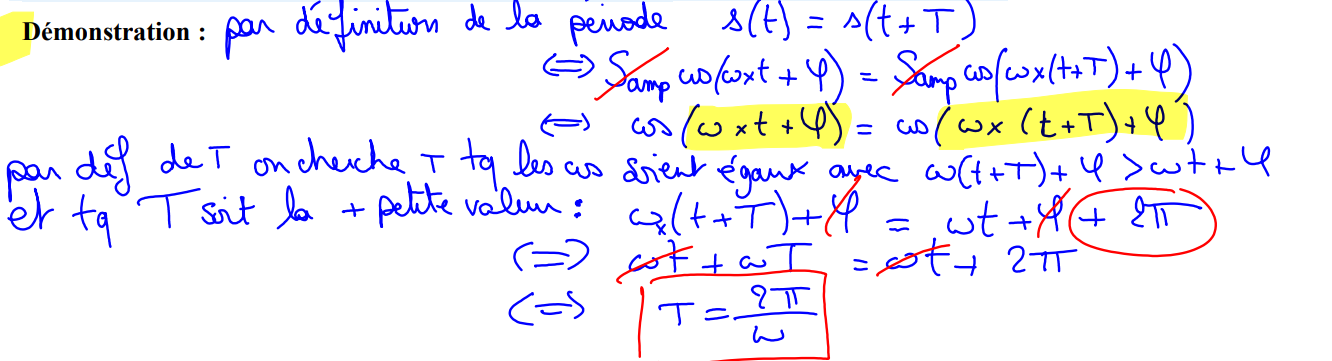 Démonstration : par définition de la période s(t) = s(t+T)
⇔ Samp cos(ω×t + φ) = Samp cos(ω×(t+T)+φ)
⇔ cos (ω×t+φ) = cos (ω× (t+T)+φ)
par déf de T on cherche T tq les cos soient égaux avec ω(t+T)+φ>ωt+φ
et tq T soit la + petite valeur : ω×(t+T)+φ = ωt+φ+2π
⇔ ωt+ωT = ωt+2π
⇔ T = 2π/ω